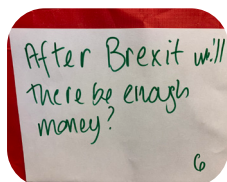 After Brexit will
there be enough
money?
6